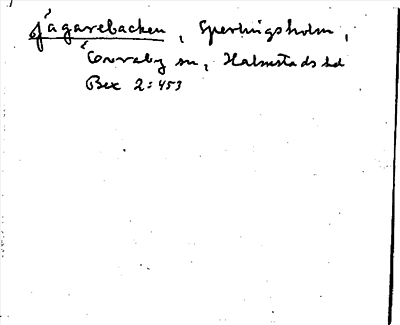 Jägarebacken, Sperlingsholm,
Enslöv sn, Halmstads hd
Bex 2:453